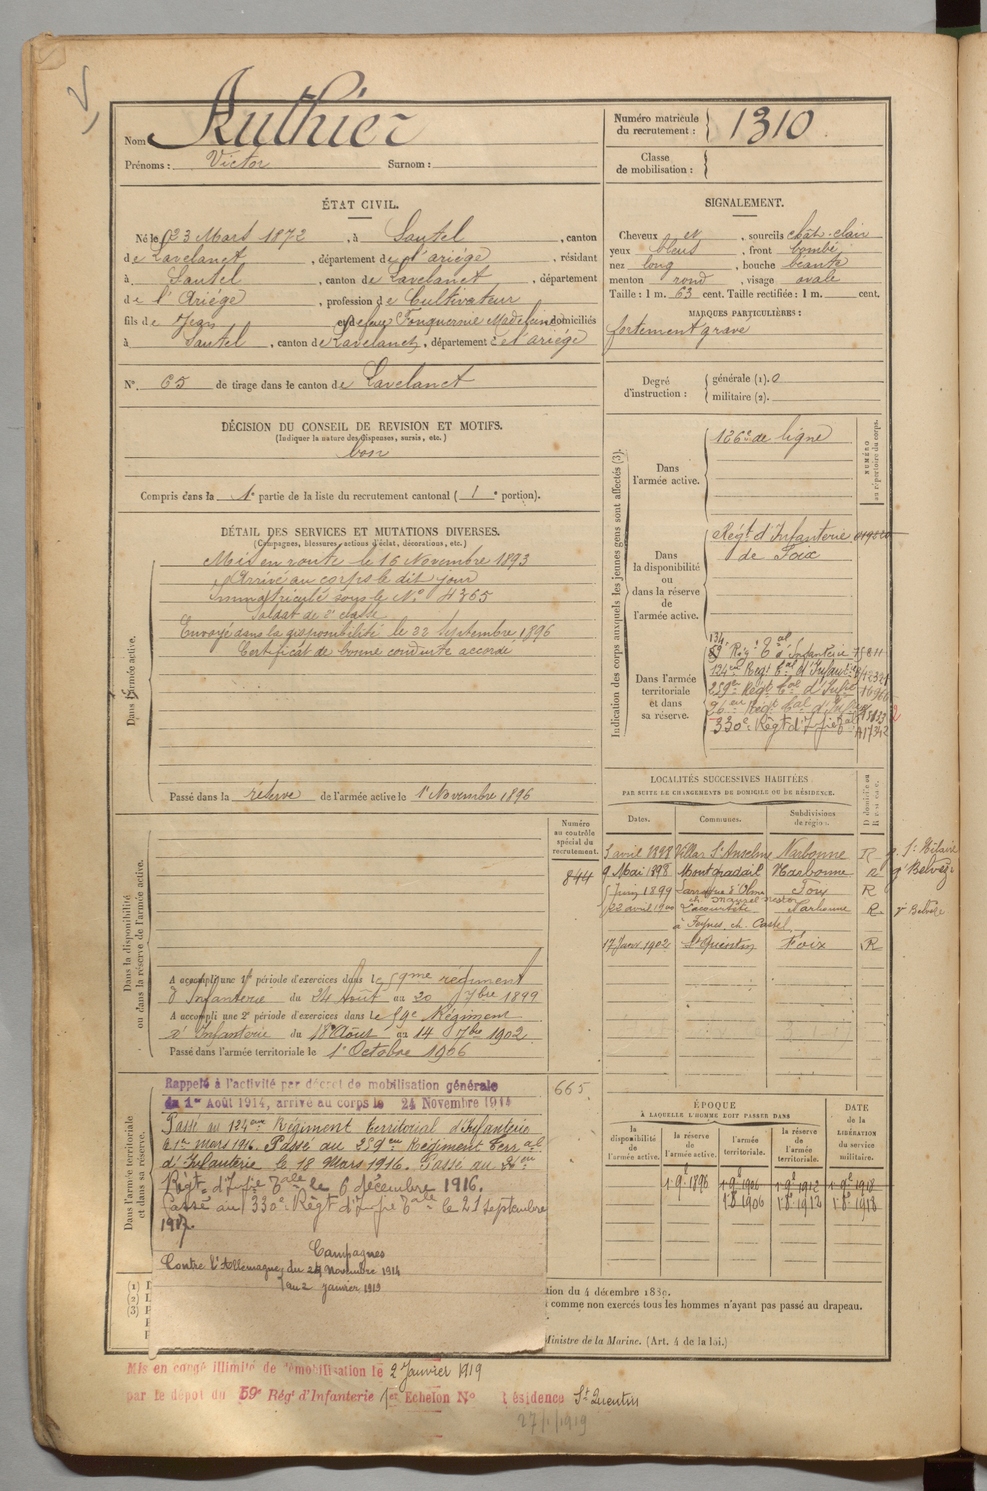 Nom Authier
Prénoms : Victor Surnom :
Numéro matricule du recrutement : 1310
Classe de mobilisation :
ÉTAT CIVIL.
Né le 23 Mars 1872, à Sautel, canton
de Lavelanet, département de l'ariége, résidant
à Sautel, canton de Lavelanet, département
de l'Ariége, profession de Cultivateur
fils de Jean et de feue Fonquernie Madeleine domiciliés
à Sautel, canton de Lavelanet, département de l'ariége
N° 65 de tirage dans le canton de Lavelanet
SIGNALEMENT.
Cheveux et, sourcils chât. clair
yeux bleus, front bombé
nez long, bouche béante
menton rond, visage ovale
Taille : 1 m. 63 cent. Taille rectifiée : 1 m. cent.
MARQUES PARTICULIÈRES :
fortement gravé
Degré d'instruction : générale (1). 0
militaire (2).
DÉCISION DU CONSEIL DE REVISION ET MOTIFS.
(Indiquer la nature des dispenses, sursis, etc.)
bon
Compris dans la 1e partie de la liste du recrutement cantonal ( 1 e portion).
DÉTAIL DES SERVICES ET MUTATIONS DIVERSES.
(Campagnes, blessures, actions d'éclat, décorations, etc.)
Dans l'armée active.
Mis en route le 16 Novembre 1893
Arrivé au corps le dit jour
Immatriculé sous le N° 4365
Soldat de 2e classe
Envoyé dans la disponibilité le 22 Septembre 1896
Certificat de bonne conduite accordé
Passé dans la réserve de l'armée active le 1er Novembre 1896
Indication des corps auxquels les jeunes gens sont affectés (3).
NUMÉRO au répertoire du corps.
Dans l'armée active.
126e de ligne
Dans la disponibilité ou dans la réserve de l'armée active.
Régt d'Infanterie
de Foix
Dans l'armée territoriale et dans sa réserve.
134
Régt Tal d'Infanterie
124eme Régt Tal d'Infanterie
259e Régt Tal d'Infie
96eme Régt Tal d'Infie
330e Régt d'Infie Tale
LOCALITÉS SUCCESSIVES HABITÉES
PAR SUITE DE CHANGEMENTS DE DOMICILE OU DE RÉSIDENCE.
Dates. Communes. Subdivisions de région.
3 avril 1898 Villar St Anselme Narbonne R g. St Hilaire
9 Mai 1898 Montgradail Narbonne R g. Belvèze
Juin 1899 Larroque d'Olmes Foix R
22 avril 1900 Lacourtète Narbonne R g. Belvèze
17 Janv 1902 St Quentin Foix R
Dans la disponibilité ou dans la réserve de l'armée active.
Numéro au contrôle spécial du recrutement.
844
A accompli une 1e période d'exercices dans le 59me régiment
d'Infanterie du 24 Août au 20 7bre 1899
A accompli une 2e période d'exercices dans le 59e Régiment
d'Infanterie du 18 Août au 14 7bre 1902
Passé dans l'armée territoriale le 1er Octobre 1906
Dans l'armée territoriale et dans sa réserve.
665
Rappelé à l'activité par décret de mobilisation générale
du 1er Août 1914, arrivé au corps le 24 Novembre 1914
Passé au 124eme Régiment territorial d'Infanterie
le 1er mars 1916. Passé au 259eme Régiment Terral
d'Infanterie le 18 Mars 1916. Passé au 96eme
Régt d'Infie Tale le 6 décembre 1916.
Passé au 330e Régt d'Infie Tale le 21 septembre
1917.
Campagnes
Contre l'Allemagne, du 24 Novembre 1914
au 2 Janvier 1919
ÉPOQUE
À LAQUELLE L'HOMME DOIT PASSER DANS
la disponibilité de l'armée active. la réserve de l'armée active. l'armée territoriale. la réserve de l'armée territoriale.
DATE de la LIBÉRATION du service militaire.
1.9e 1896 1.9e 1906 1.9e 1912 1.9e 1918
1.8e 1906 1.8e 1912 1.8e 1918
(1)
(2)
(3)
tion du 4 décembre 1889.
comme non exercés tous les hommes n'ayant pas passé au drapeau.
Ministre de la Marine. (Art. 4 de la loi.)
Mis en congé illimité de démobilisation le 2 Janvier 1919
par le dépôt du 59e Régt d'Infanterie 1er Echelon N° Résidence St Quentin
27/1/1919